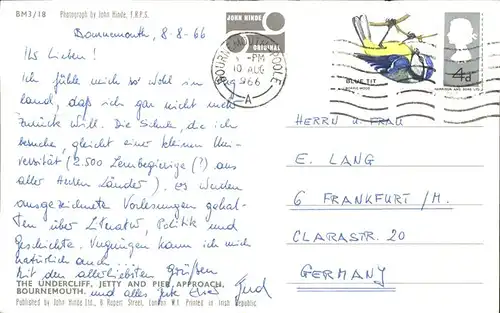 BM3/18 Photograph by John Hinde, F.R.P.S.
Bournemouth, 8-8-66
Ihr Lieben!
Ich fühle mich so wohl in
land, daß ich gar nicht mehr
zurück will. Die Schule, die ich
besuche, gleicht einer kleinen Uni-
versität (2.500 Lernbegierige (?) aus
aller Herren Länder). Es werden
ausgezeichnete Vorlesungen gehal-
ten über Literatur, Politik und
Geschichte. Vergnügen kann ich mich
natürlich auch
Mit den allerliebsten Grüßen
THE UNDERCLIFF, JETTY AND PIER APPROACH,
BOURNEMOUTH. und alles Gute Eure
Published by John Hinde Ltd., 8 Rupert Street, London W.1. Printed in Irish Republic
JOHN HINDE
ORIGINAL
BOURNEMOUTH POOLE
-PM
10 AUG
1966
-A
BLUE TIT
HARRISON AND SONS LTD
4d
HERRN U. FRAU
E. LANG
6 FRANKFURT/M.
CLARASTR. 20
GERMANY